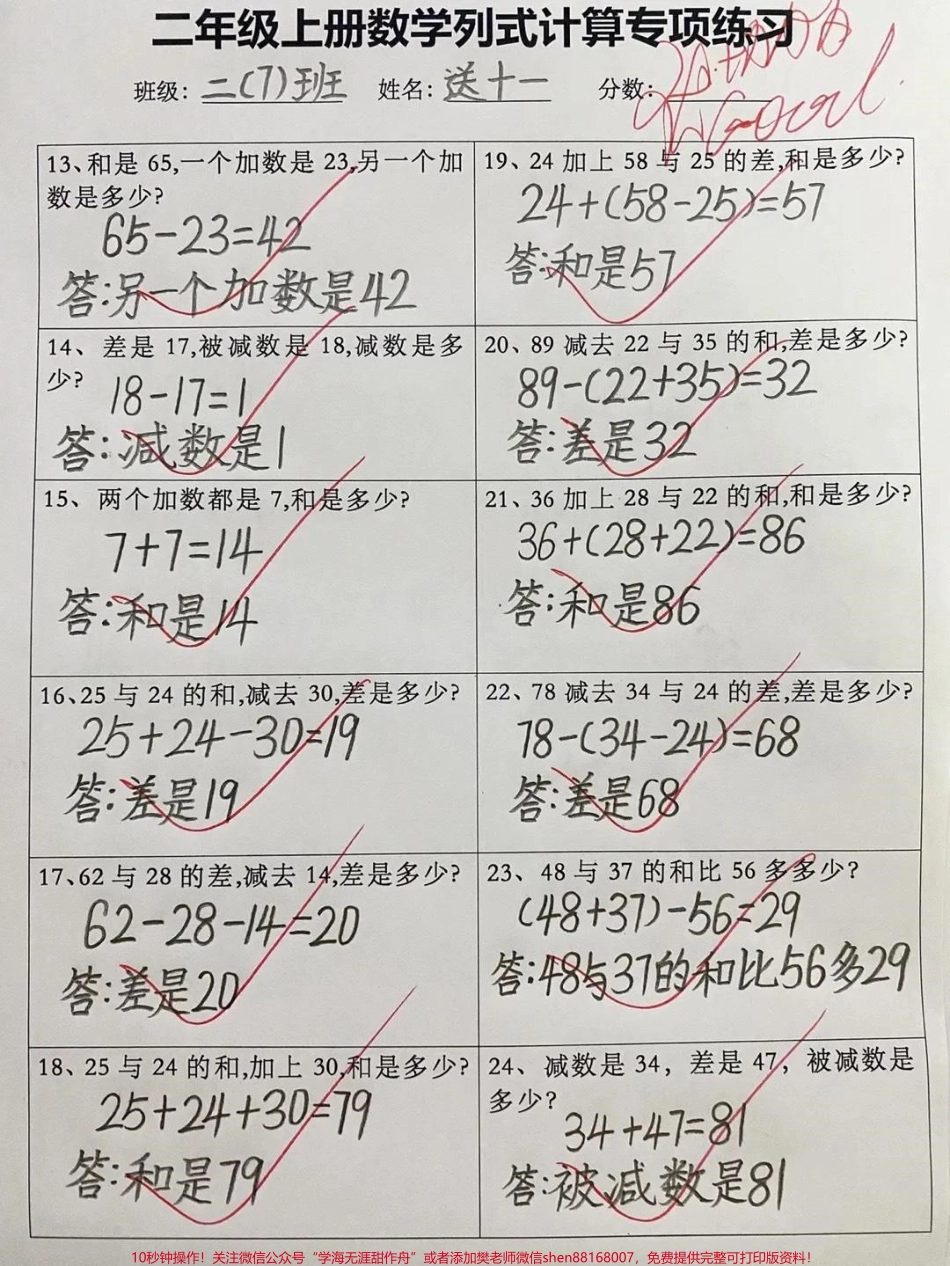 二年级上册数学列式计算专项练习
班级：二(7)班 姓名：送十一 分数：
Good
13、和是 65,一个加数是 23,另一个加
数是多少?
65-23=42
答:另一个加数是42
14、差是 17,被减数是 18,减数是多
少?
18-17=1
答:减数是1
15、两个加数都是 7,和是多少?
7+7=14
答:和是14
16、25 与 24 的和,减去 30,差是多少?
25+24-30=19
答:差是19
17、62 与 28 的差,减去 14,差是多少?
62-28-14=20
答:差是20
18、25 与 24 的和,加上 30,和是多少?
25+24+30=79
答:和是79
19、24 加上 58 与 25 的差,和是多少?
24+(58-25)=57
答:和是57
20、89 减去 22 与 35 的和,差是多少?
89-(22+35)=32
答:差是32
21、36 加上 28 与 22 的和,和是多少?
36+(28+22)=86
答:和是86
22、78 减去 34 与 24 的差,差是多少?
78-(34-24)=68
答:差是68
23、48 与 37 的和比 56 多多少?
(48+37)-56=29
答:48与37的和比56多29
24、减数是 34，差是 47，被减数是
多少?
34+47=81
答:被减数是81
10秒钟操作！关注微信公众号“学海无涯甜作舟”或者添加樊老师微信shen88168007，免费提供完整可打印版资料！